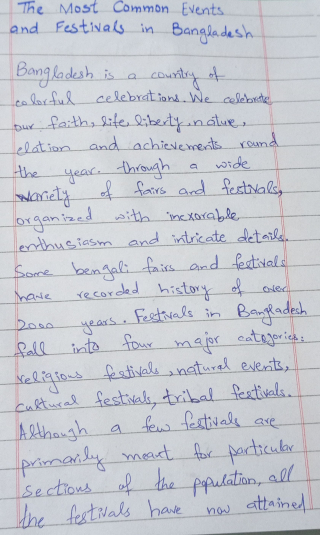 The Most Common Events
and Festivals in Bangladesh
Bangladesh is a country of
colorful celebrations. We celebrate
our faith, life, liberty, natue,
elation and achievements round
the year. through a wide
variety of fairs and festivals,
organized with inexorable
enthusiasm and intricate details.
Some bengali fairs and festivals
have recorded history of over
2000 years. Festivals in Bangladesh
fall into four major categories:
religious festivals, natural events,
cultural festivals, tribal festivals.
Although a few festivals are
primarily meant for particular
sections of the population, all
the festivals have now attained